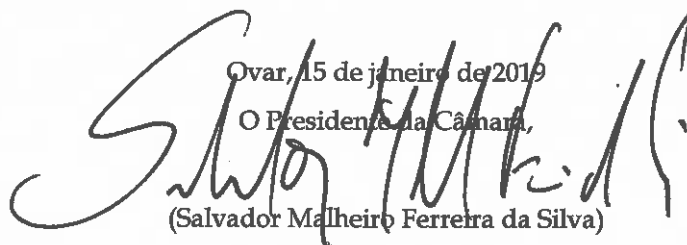 Ovar, 15 de janeiro de 2019
O Presidente da Câmara,
(Salvador Malheiro Ferreira da Silva)